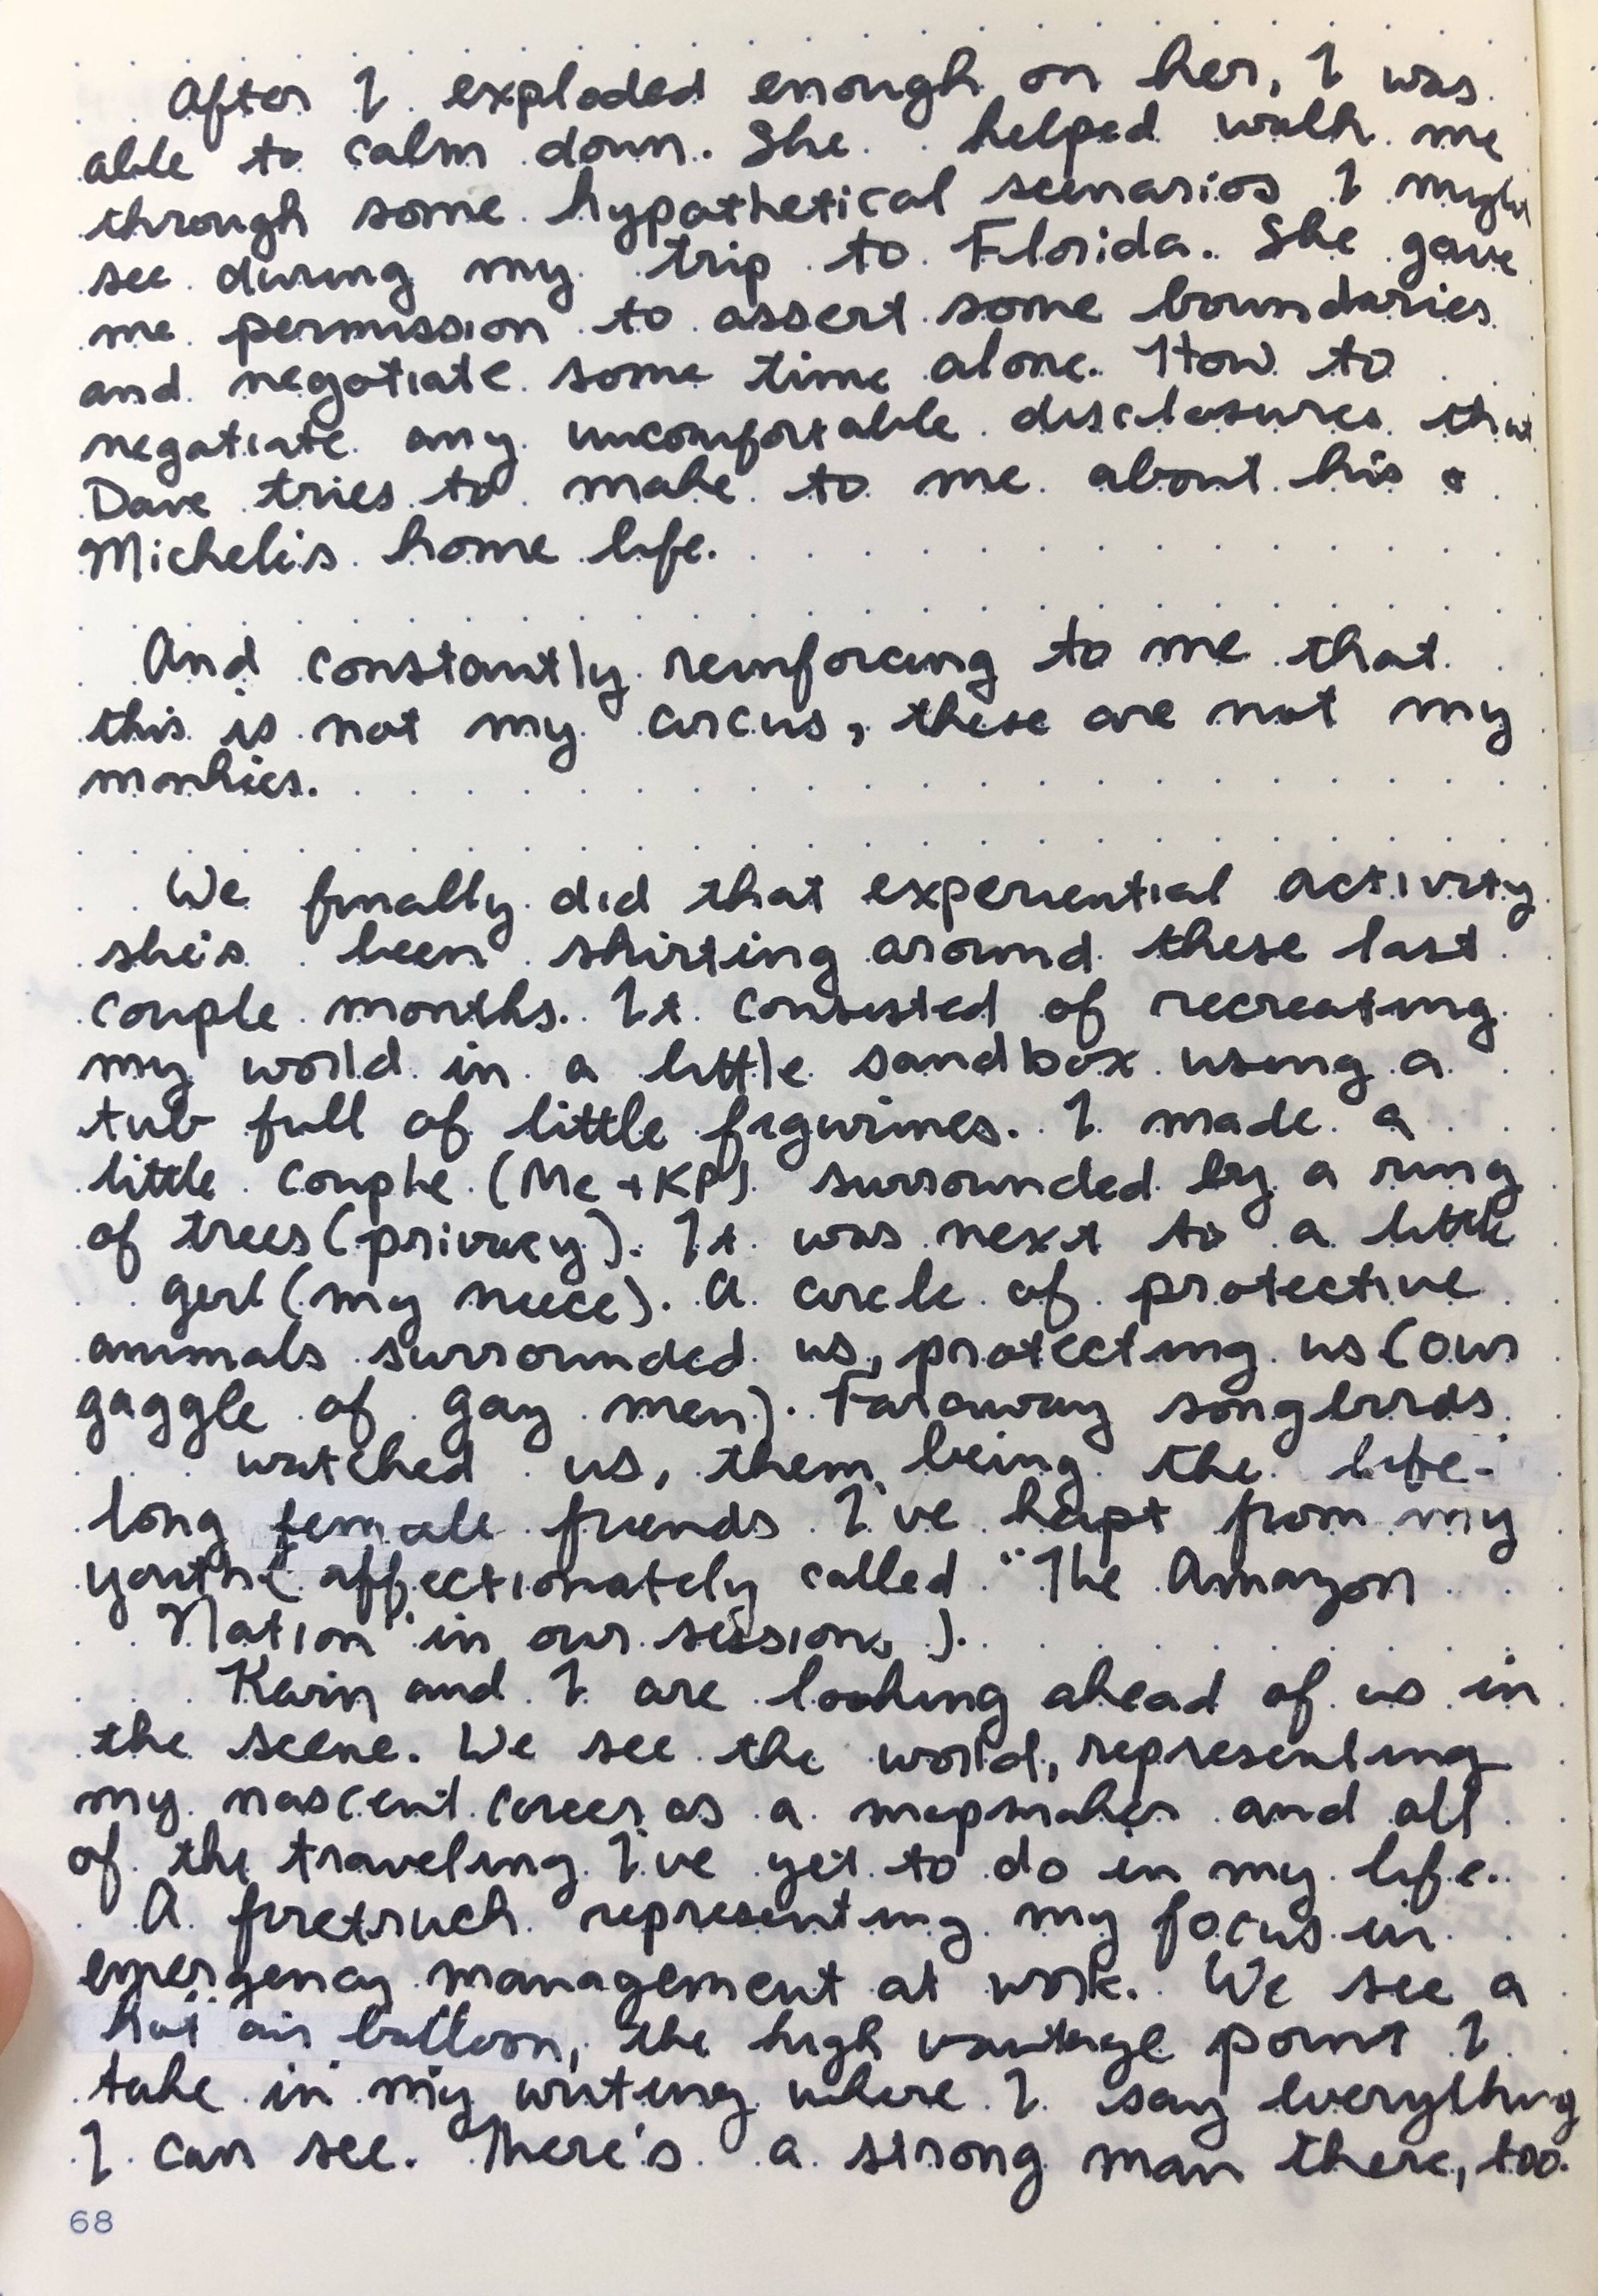 After I exploded enough on her, I was
able to calm down. She helped walk me
through some hypothetical scenarios I might
see during my trip to Florida. She gave
me permission to assert some boundaries
and negotiate some time alone. How to
negotiate any uncomfortable disclosures that
Dave tries to make to me about his &
Michele's home life.
And constantly reinforcing to me that
this is not my circus, these are not my
monkies.
We finally did that experiential activity
she's been skirting around these last
couple months. It consisted of recreating
my world in a little sandbox using a
tub full of little figurines. I made a
little couple (Me + KP) surrounded by a ring
of trees (privacy). It was next to a little
girl (my niece). A circle of protective
animals surrounded us, protecting us (our
gaggle of gay men). Faraway songbirds
watched us, them being the life-
long female friends I've kept from my
youth (affectionately called "The Amazon
Nation" in our sessions).
Karin and I are looking ahead of us in
the scene. We see the world, representing
my nascent career as a mapmaker and all
of the traveling I've yet to do in my life.
A firetruck representing my focus in
emergency management at work. We see a
hot air balloon, the high vantage point I
take in my writing where I say everything
I can see. There's a strong man there, too.
68